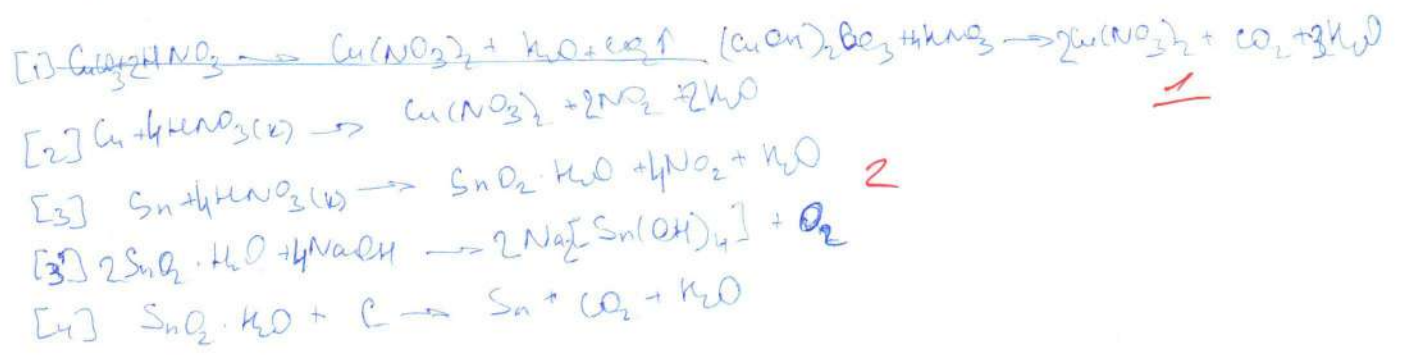 [1] CuCO3+2HNO3 → Cu(NO3)2 + H2O + CO2↑ (CuOH)2CO3 +4HNO3 → 2Cu(NO3)2 + CO2 +3H2O
1
[2] Cu +4HNO3(к) → Cu(NO3)2 +2NO2 +2H2O
[3] Sn +4HNO3(к) → SnO2·H2O +4NO2 + H2O 2
[3'] 2SnO2·H2O +4NaOH → 2Na2[Sn(OH)4] + O2
[4] SnO2·H2O + C → Sn + CO2 + H2O